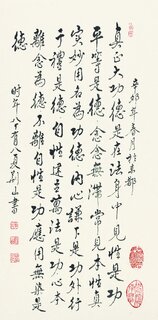 辛卯年春月於京都
真正大功德是在法身中見性是功
平等是德念念無滯常見本性真
實妙用名為功德内心謙下是功外行
于禮是德自性建立萬法是功心体
離念為德不離自性是功應用無染是
德
時年八十有八夏荆山書